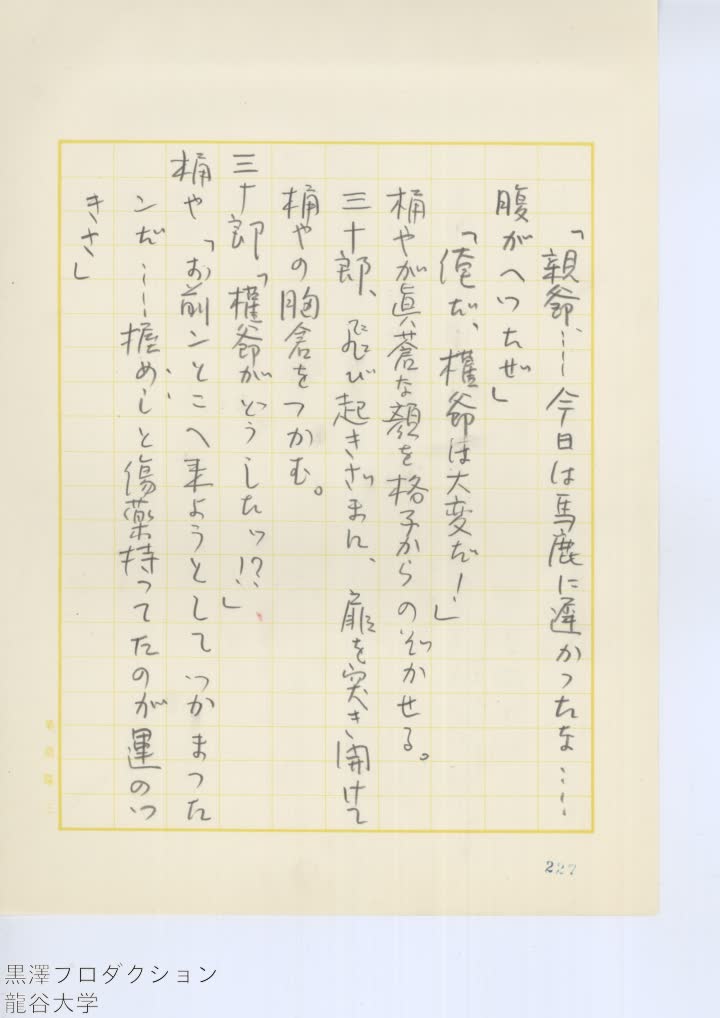 「親爺……今日は馬鹿に遅かつたな……
腹がへつたぜ」
「俺だ、權爺は大変だ！」
桶やが眞蒼な顔を格子からのぞかせる。
三十郎、飛び起きざまに、扉を突き開けて
桶やの胸倉をつかむ。
三十郎「權爺がどうしたッ!?」
桶や「お前ンとこへ来ようとしてつかまつた
ンだ……握めしと傷薬持ってたのが運のつ
きさ」
227
黒澤プロダクション
龍谷大学